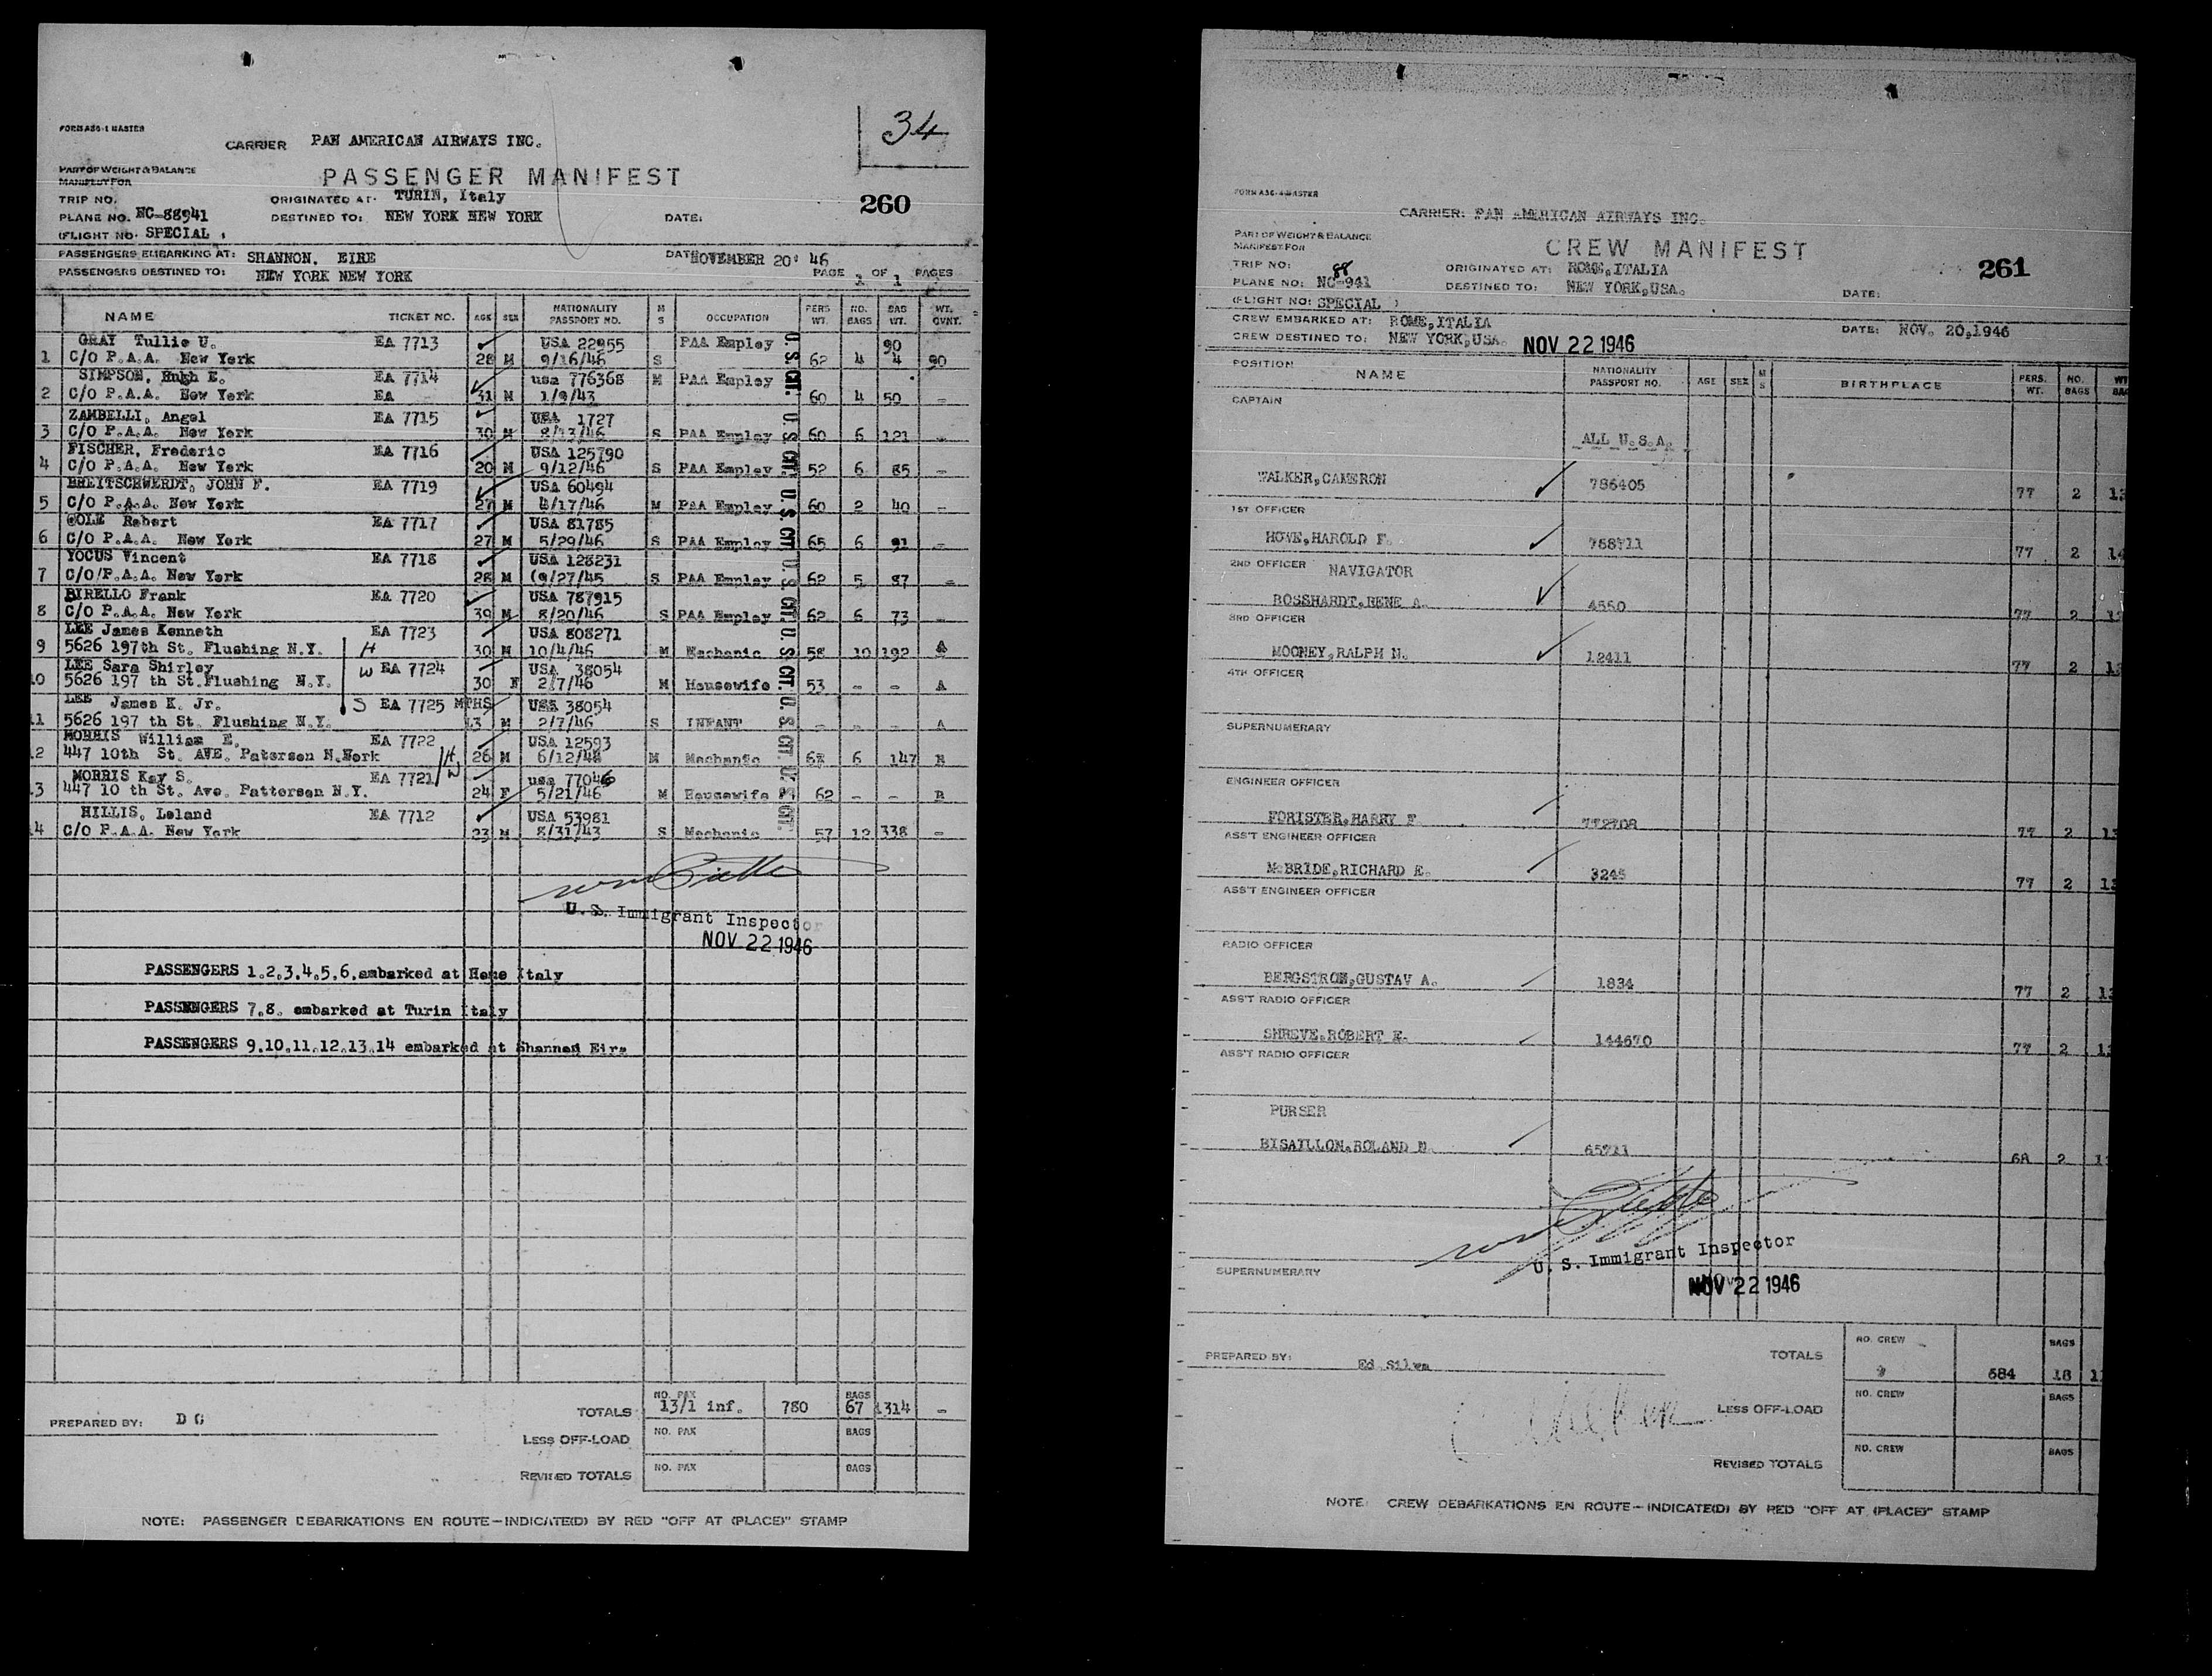 34
FORM ASG-1 MASTER
CARRIER PAN AMERICAN AIRWAYS INC.
PART OF WEIGHT & BALANCE
MANIFEST FOR
PASSENGER MANIFEST
TRIP NO.
ORIGINATED AT. TURIN, Italy
260
PLANE NO. NC-88941 DESTINED TO: NEW YORK NEW YORK DATE:
(FLIGHT NO. SPECIAL )
PASSENGERS EMBARKING AT: SHANNON, EIRE DATE NOVEMBER 20' 46
PASSENGERS DESTINED TO: NEW YORK NEW YORK PAGE 1 OF 1 PAGES
NAME TICKET NO. AGE SEX NATIONALITY PASSPORT NO. M S OCCUPATION PERS WT. NO. BAGS BAG WT. WT. CVNT.
GRAY Tullie U. EA 7713 USA 22955 PAA Employ 90
1 C/O P.A.A. New York 28 M 9/16/46 S 62 4 4 90
SIMPSON, Hugh E. EA 7714 usa 776368 M PAA Employ
2 C/O P.A.A. New York EA 31 M 1/9/43 60 4 50 -
ZAMBELLI, Angel EA 7715 USA 1727
3 C/O P.A.A. New York 30 M 8/13/46 S PAA Employ 60 6 121 -
FISCHER, Frederic EA 7716 USA 125790
4 C/O P.A.A. New York 20 M 9/12/46 S PAA Employ 52 6 85 -
BREITSCHWERDT, JOHN F. EA 7719 USA 60494
5 C/O P.A.A. New York 27 M 4/17/46 M PAA Employ 60 2 40 -
COLE Robert EA 7717 USA 81785
6 C/O P.A.A. New York 27 M 5/29/46 S PAA Employ 65 6 91 -
YOCUS Vincent EA 7718 USA 128231
7 C/O/P.A.A. New York 28 M (9/27/45 S PAA Employ 62 5 87 -
BIRELLO Frank EA 7720 USA 787915
8 C/O P.A.A. New York 39 M 8/20/46 S PAA Employ 62 6 73 -
LEE James Kenneth EA 7723 USA 808271
9 5626 197th St. Flushing N.Y. H 30 M 10/4/46 M Mechanic 58 10 192 A
LEE Sara Shirley W EA 7724 USA 38054
10 5626 197 th St.Flushing N.Y. 30 F 2/7/46 M Housewife 53 - - A
LEE James K. Jr. S EA 7725 MTHS USA 38054
11 5626 197 th St. Flushing N.Y. 13 M 2/7/46 S INFANT - - - A
MORRIS William E. EA 7722 USA 12593
12 447 10th St. AVE. Paterson N.York H 26 M 6/12/46 M Mechanic 6 147 B
MORRIS Kay S. EA 7721 W usa 77046
13 447 10 th St. Ave. Patterson N.Y. 24 F 5/21/46 M Housewife 62 - - B
HILLIS, Leland EA 7712 USA 53981
14 C/O P.A.A. New York 23 M 8/31/43 S Mechanic 57 12 338 -
U.S. CIT. U.S. CIT. U.S. CIT. U.S. CIT. U.S. CIT. U.S. CIT. U.S. CIT.
U. S. Immigrant Inspector
NOV 22 1946
PASSENGERS 1.2.3.4.5.6.embarked at Rome Italy
PASSENGERS 7.8. embarked at Turin Italy
PASSENGERS 9.10.11.12.13.14 embarked at Shannon Eire
TOTALS NO. PAX 13/1 inf. 780 BAGS 67 1314 -
PREPARED BY: D G
LESS OFF-LOAD NO. PAX BAGS
REVISED TOTALS NO. PAX BAGS
NOTE: PASSENGER DEBARKATIONS EN ROUTE-INDICATE(D) BY RED "OFF AT (PLACE)" STAMP
FORM ASG-4-MASTER
CARRIER: PAN AMERICAN AIRWAYS INC.
PART OF WEIGHT & BALANCE
MANIFEST FOR
CREW MANIFEST
TRIP NO: 88 ORIGINATED AT: ROME,ITALIA
261
PLANE NO: NC-941 DESTINED TO: NEW YORK,USA. DATE:
(FLIGHT NO: SPECIAL )
CREW EMBARKED AT: ROME,ITALIA DATE: NOV. 20,1946
CREW DESTINED TO: NEW YORK,USA. NOV 22 1946
POSITION NAME NATIONALITY PASSPORT NO. AGE SEX M S BIRTHPLACE PERS. WT. NO. BAGS
CAPTAIN
ALL U.S.A.
WALKER,CAMERON 786405 77 2
1ST OFFICER
HOWE,HAROLD F. 788711 77 2
2ND OFFICER NAVIGATOR
BOSSHARDT,RENE A. 4550 77 2
3RD OFFICER
MOONEY,RALPH N. 12411 77 2
4TH OFFICER
SUPERNUMERARY
ENGINEER OFFICER
FORISTER,HARRY F 772708 77 2
ASS'T ENGINEER OFFICER
McBRIDE,RICHARD E. 3245 77 2
ASS'T ENGINEER OFFICER
RADIO OFFICER
BERGSTROM,GUSTAV A. 1834 77 2
ASS'T RADIO OFFICER
SHREVE,ROBERT E. 144670 77 2
ASS'T RADIO OFFICER
PURSER
BISAILLON,ROLAND 65711 68 2
U. S. Immigrant Inspector
SUPERNUMERARY
NOV 22 1946
PREPARED BY: Ed Silva TOTALS NO. CREW 9 684 BAGS 18
LESS OFF-LOAD NO. CREW BAGS
REVISED TOTALS NO. CREW BAGS
NOTE: CREW DEBARKATIONS EN ROUTE-INDICATE(D) BY RED "OFF AT (PLACE)" STAMP